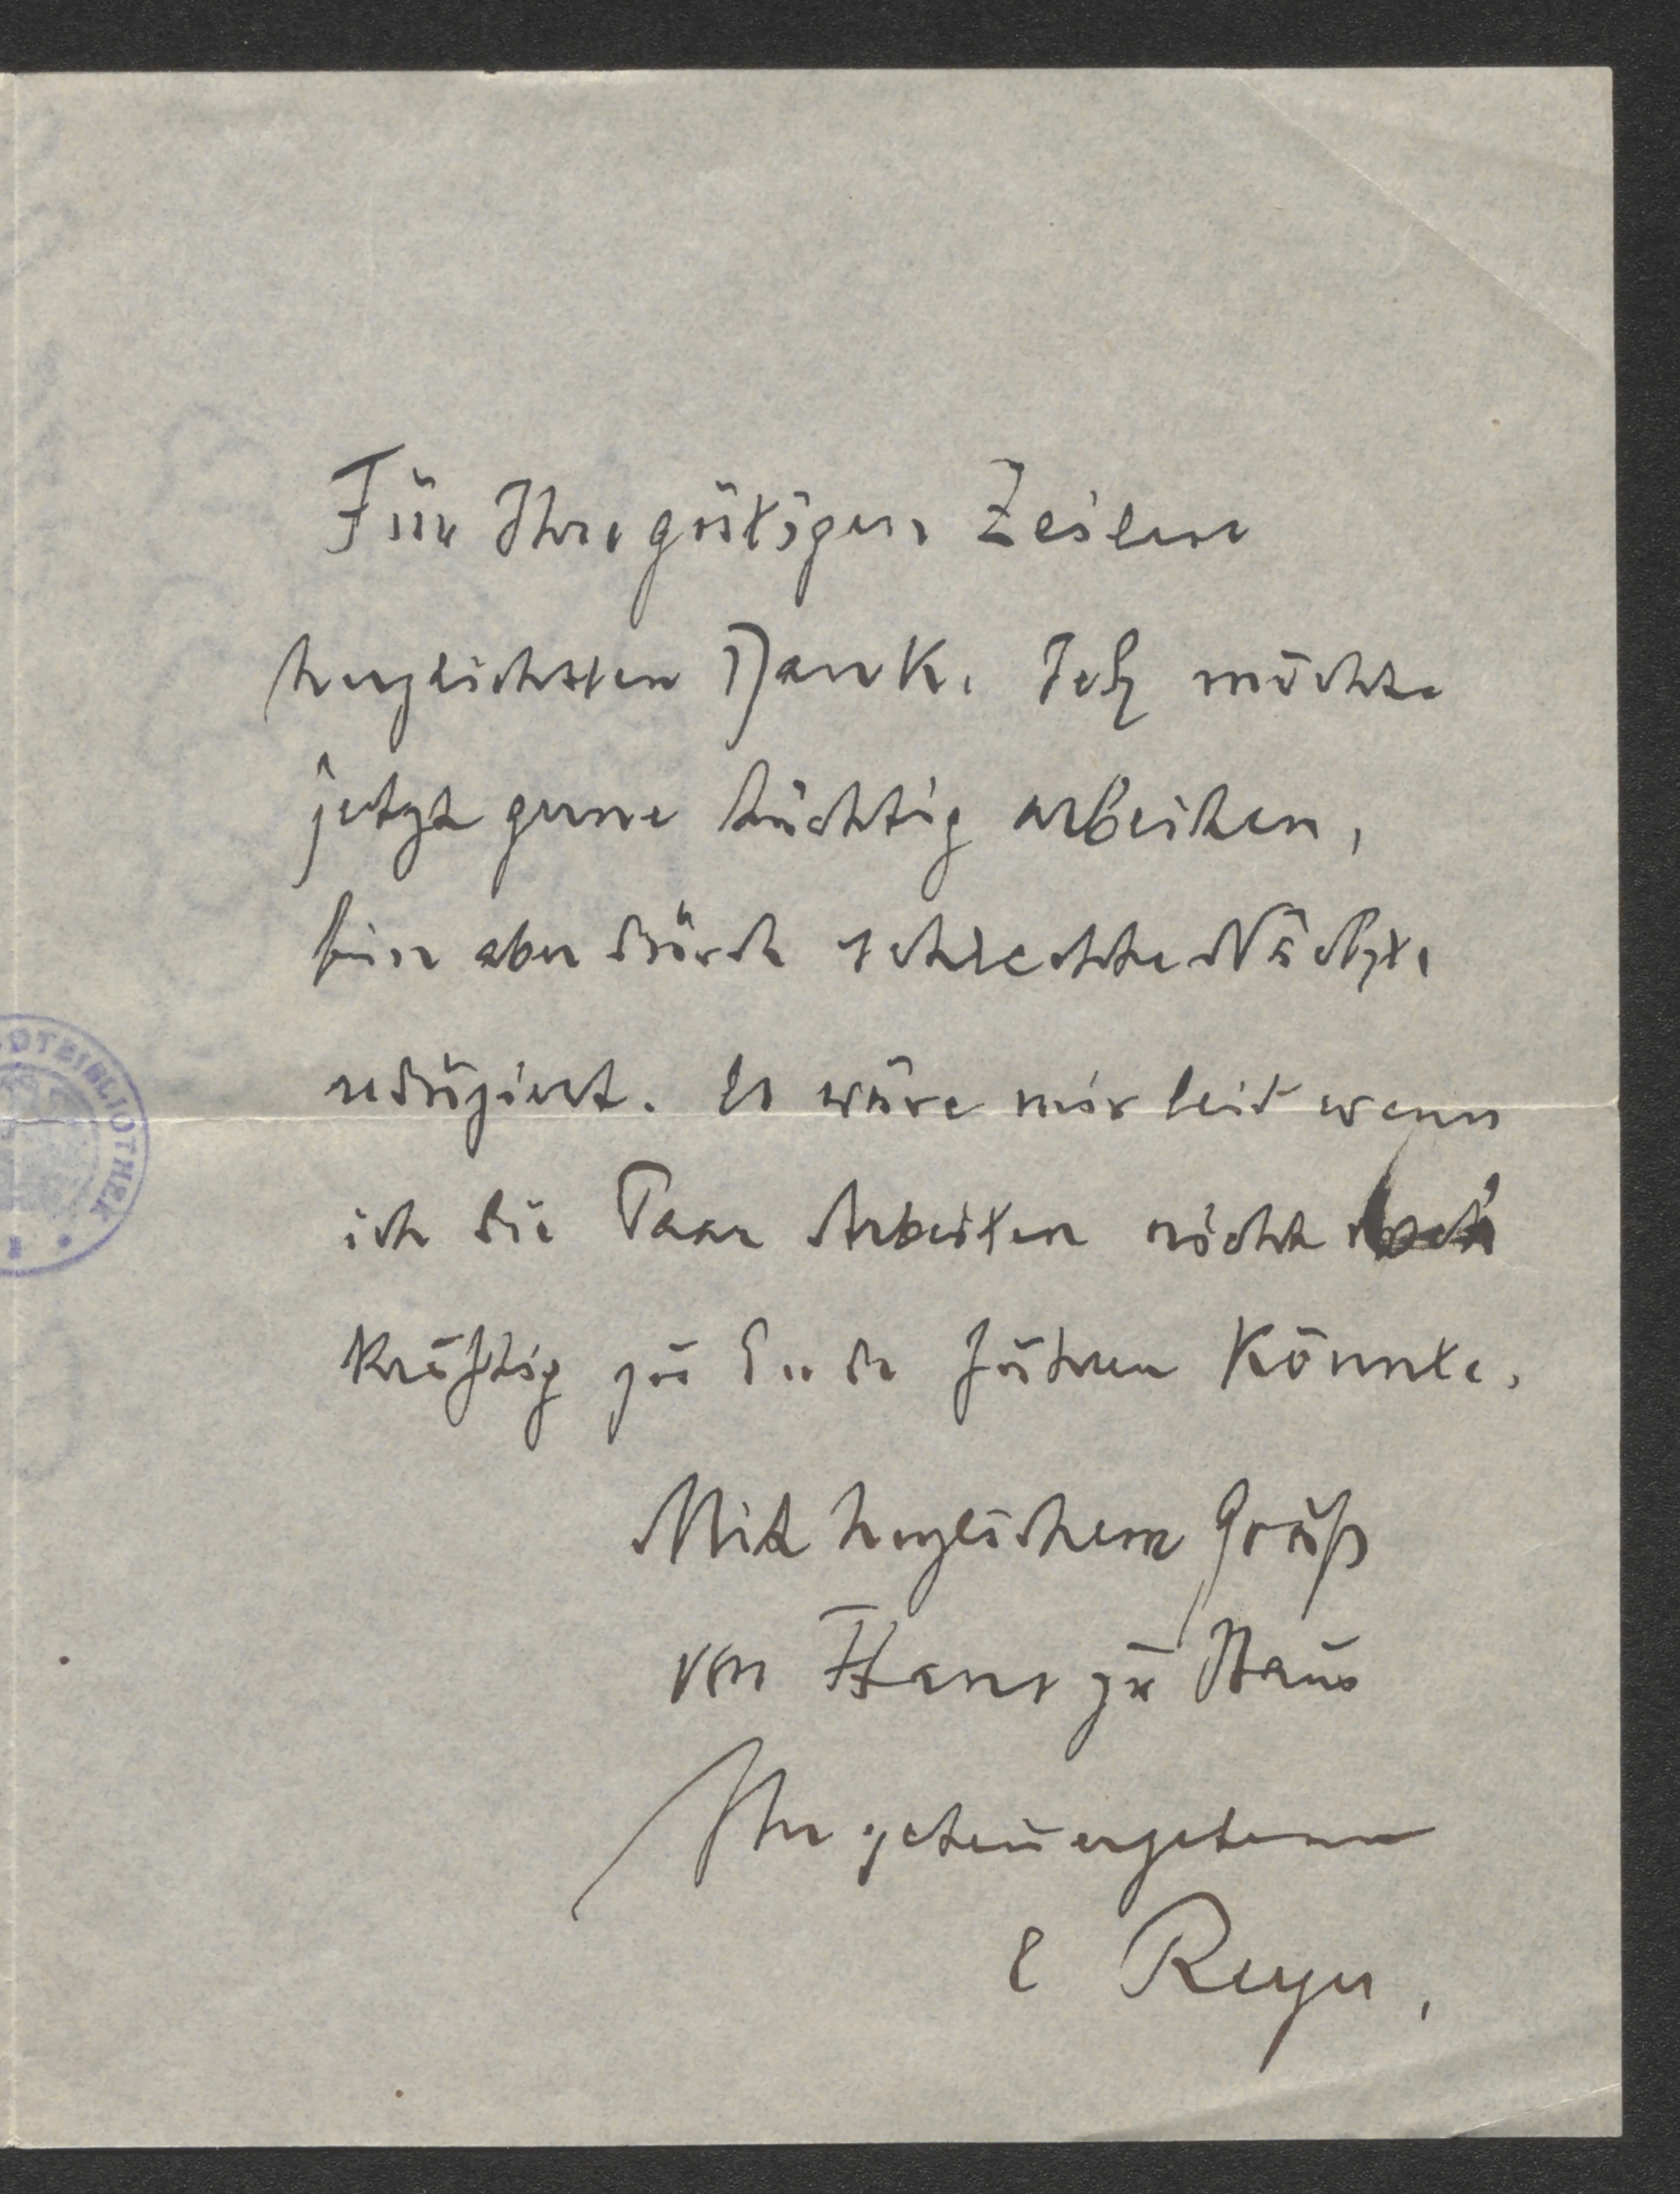 Für Ihre gütigen Zeilen
herzlichsten Dank. Ich möchte
jetzt gerne tüchtig arbeiten,
bin aber durch schlechte Nächte
reduziert. Es wäre mir leid wenn
ich die Paar Arbeiten nicht
kräftig zu Ende führen könnte.
Mit herzlichem Gruß
von Haus zu Haus
Ihr getreu ergebener
E Reyer.
DTBIBLIOTHEK